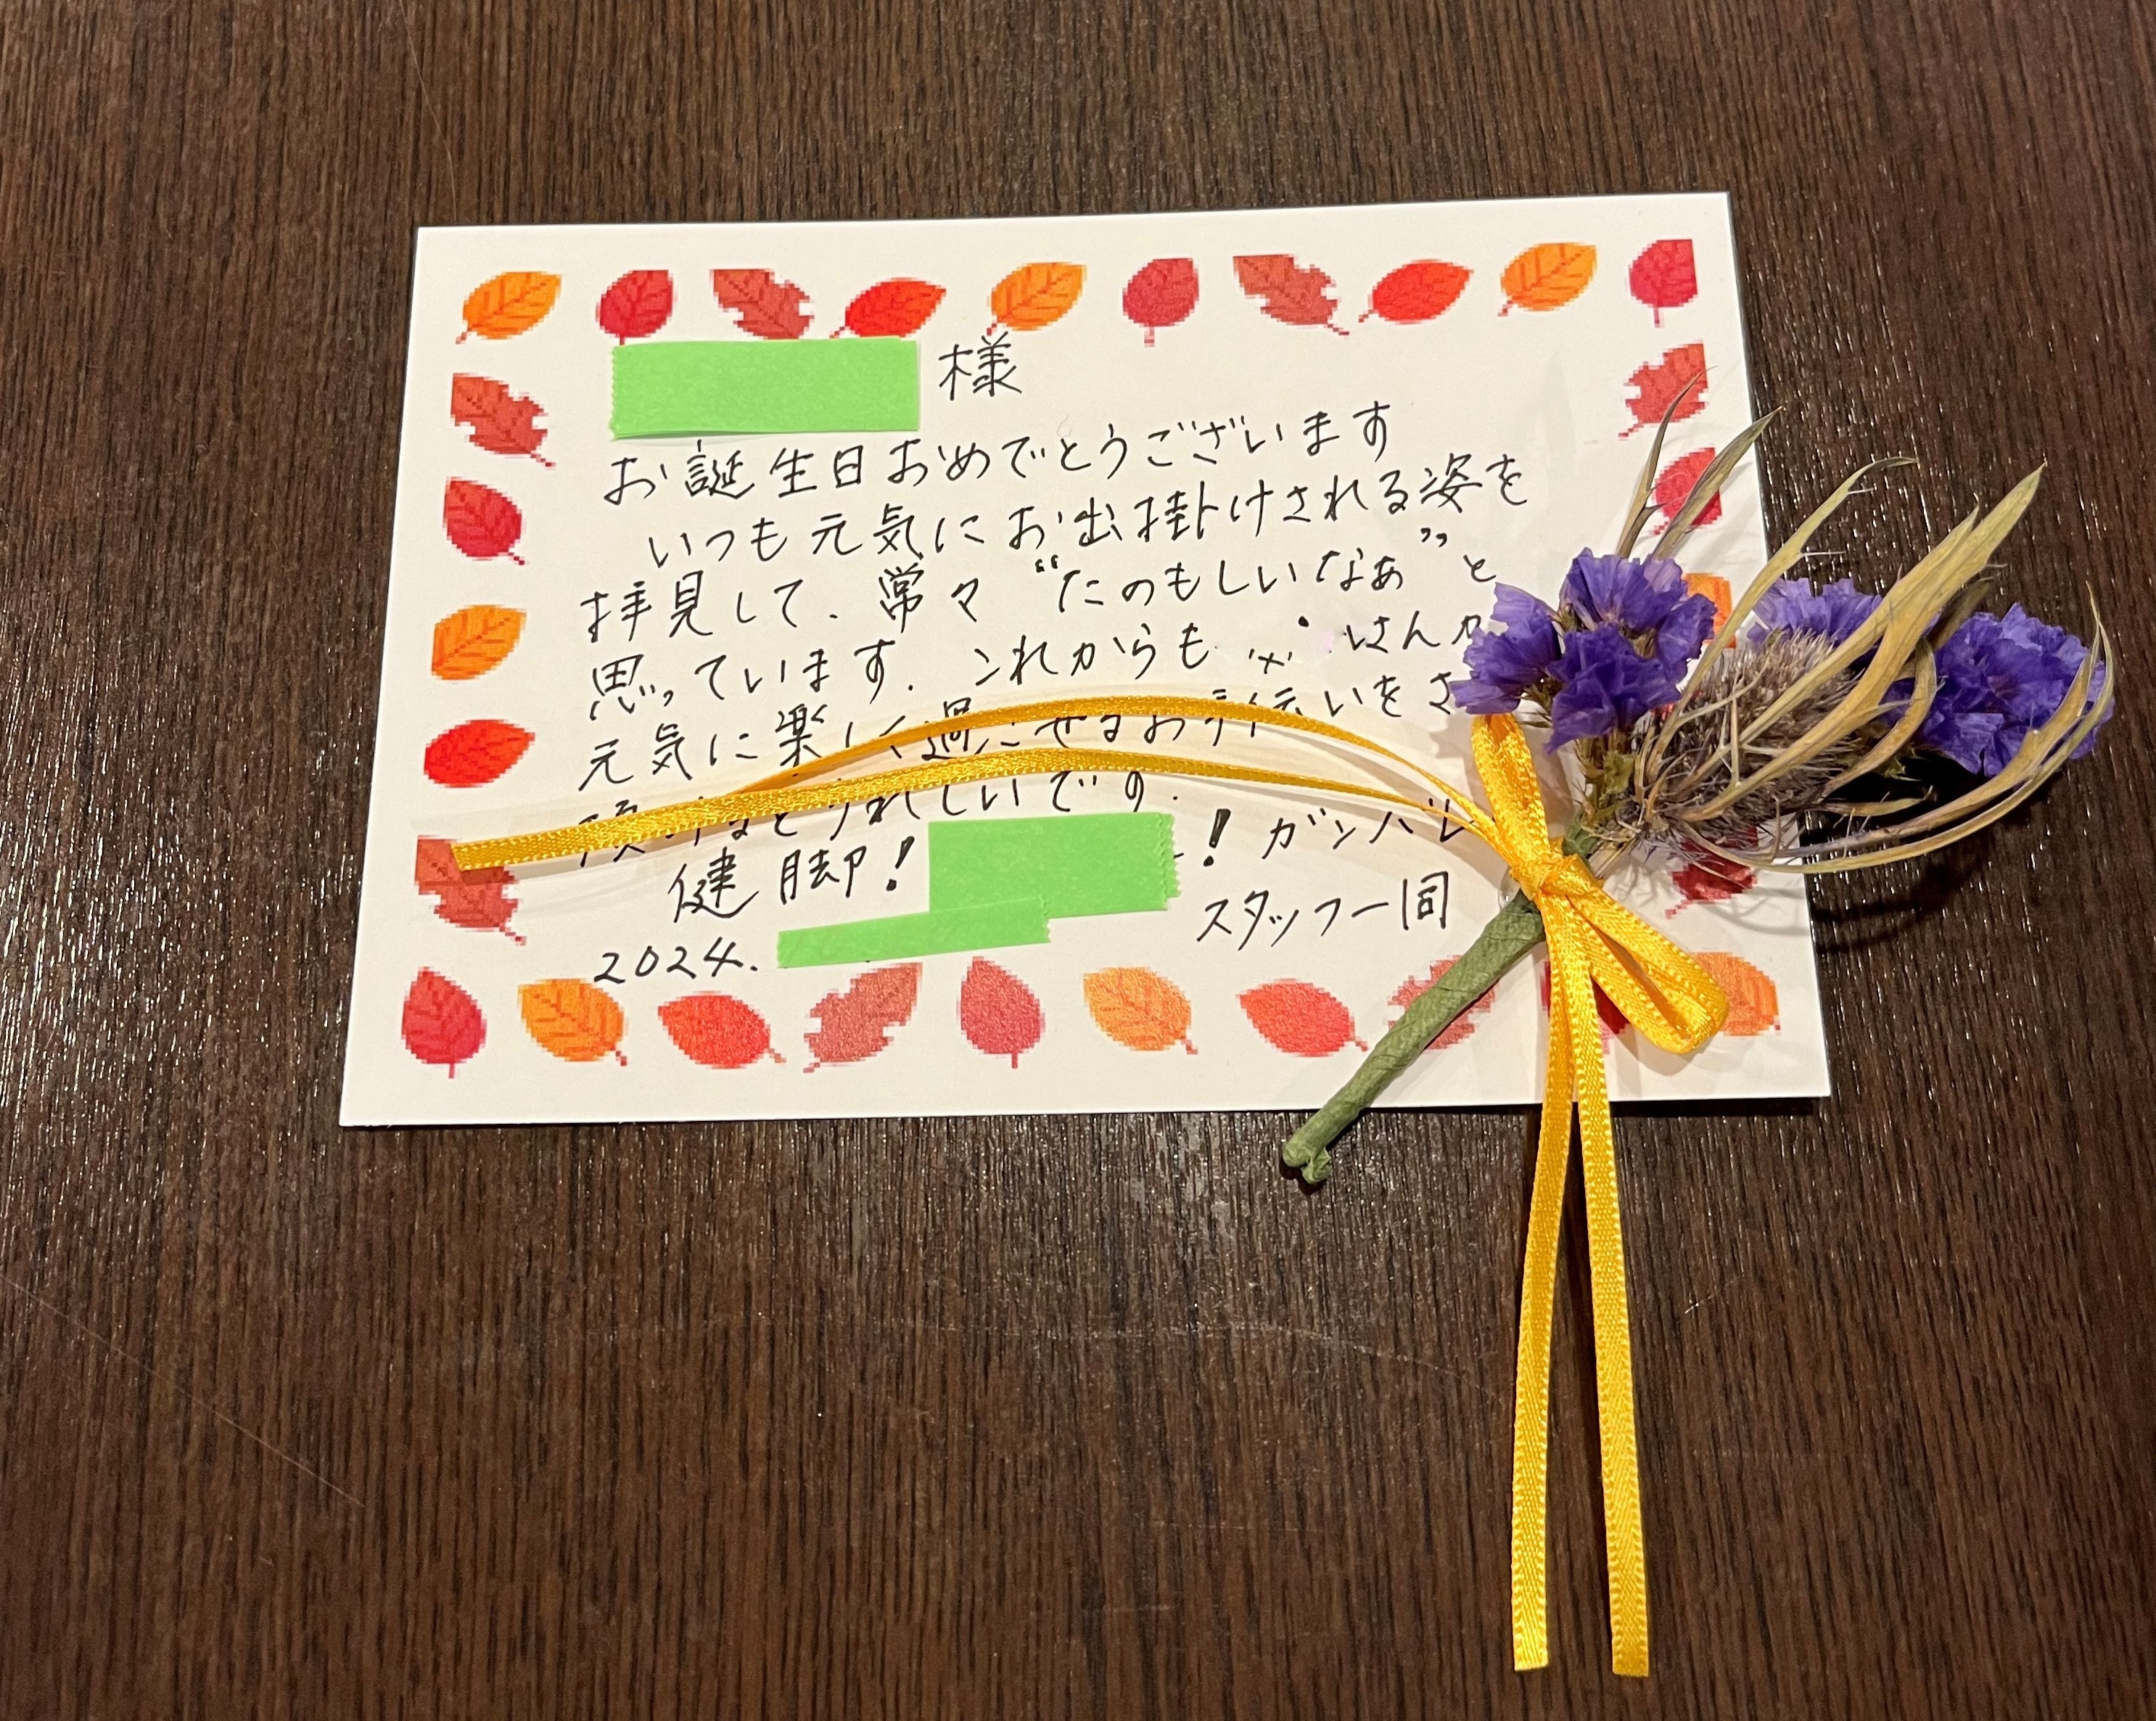 様
お誕生日おめでとうございます
いつも元気にお出掛けされる姿を
拝見して、常々“たのもしいなぁ”と
思っています。これからも さんが
元気に楽しく過ごせるお手伝いをさ
うれしいです。
健脚! ! ガンバレ
スタッフ一同
2024.